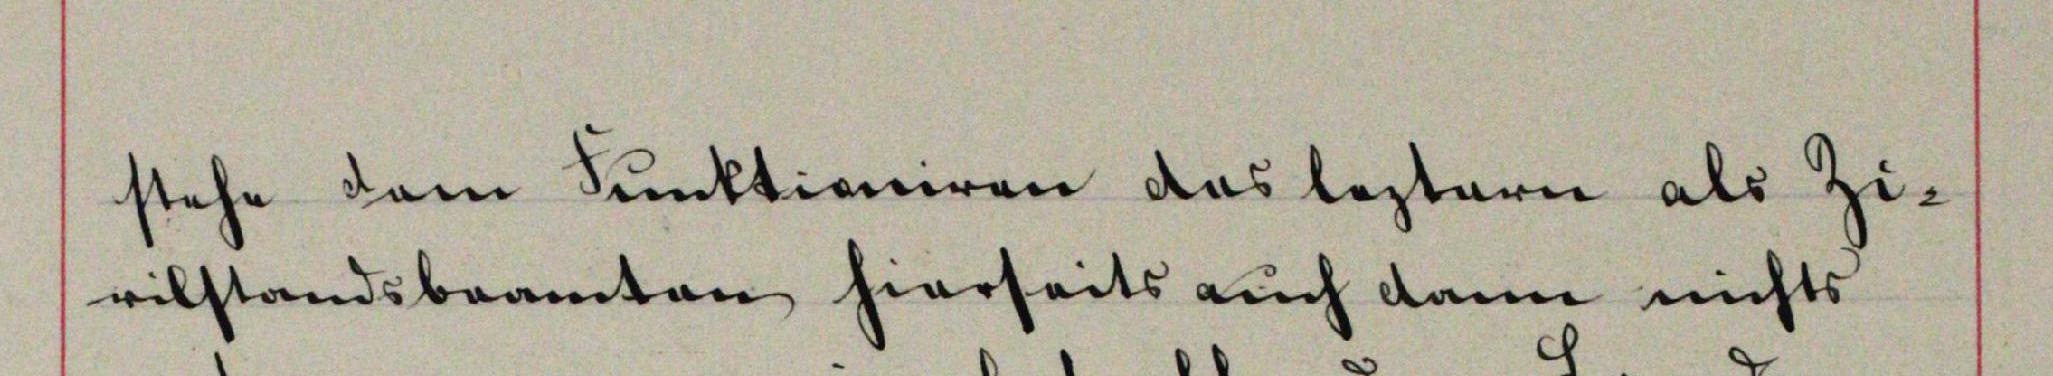 stehe dem Funktioniren des leztern als Zi-
vilstandsbeamten hierseits auch dann nichts